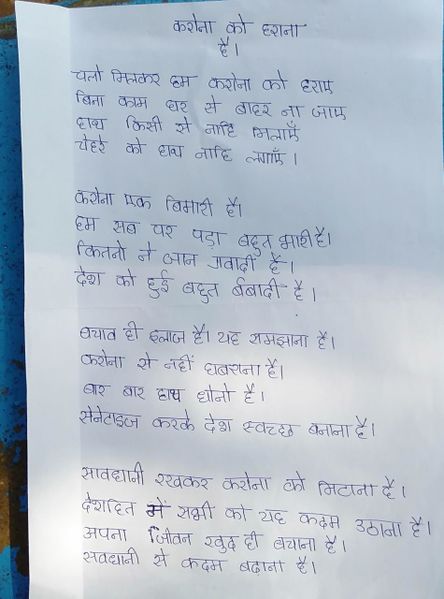 करोना को हराना
है।
चलो मिलकर हम करोना को हराए
बिना काम घर से बाहर ना जाए
हाथ किसी से नाहि मिलाएँ
चेहरे को हाथ नाहि लगाएँ।
करोना एक बिमारी है।
हम सब पर पड़ा बहुत भारी है।
कितनो ने जान गवादी है।
देश को हुई बहुत र्बबादी है।
बचाव ही इलाज है। यह समझाना है।
करोना से नहीं घबराना है।
बार बार हाथ धोनो है।
सेनेटाइज करके देश स्वच्छ बनाना है।
सावधानी रखकर करोना को मिटाना है।
देशहित में सभी को यह कदम उठाना है।
अपना जिवन खुद ही बचाना है।
सवधानी से कदम बढाना है।